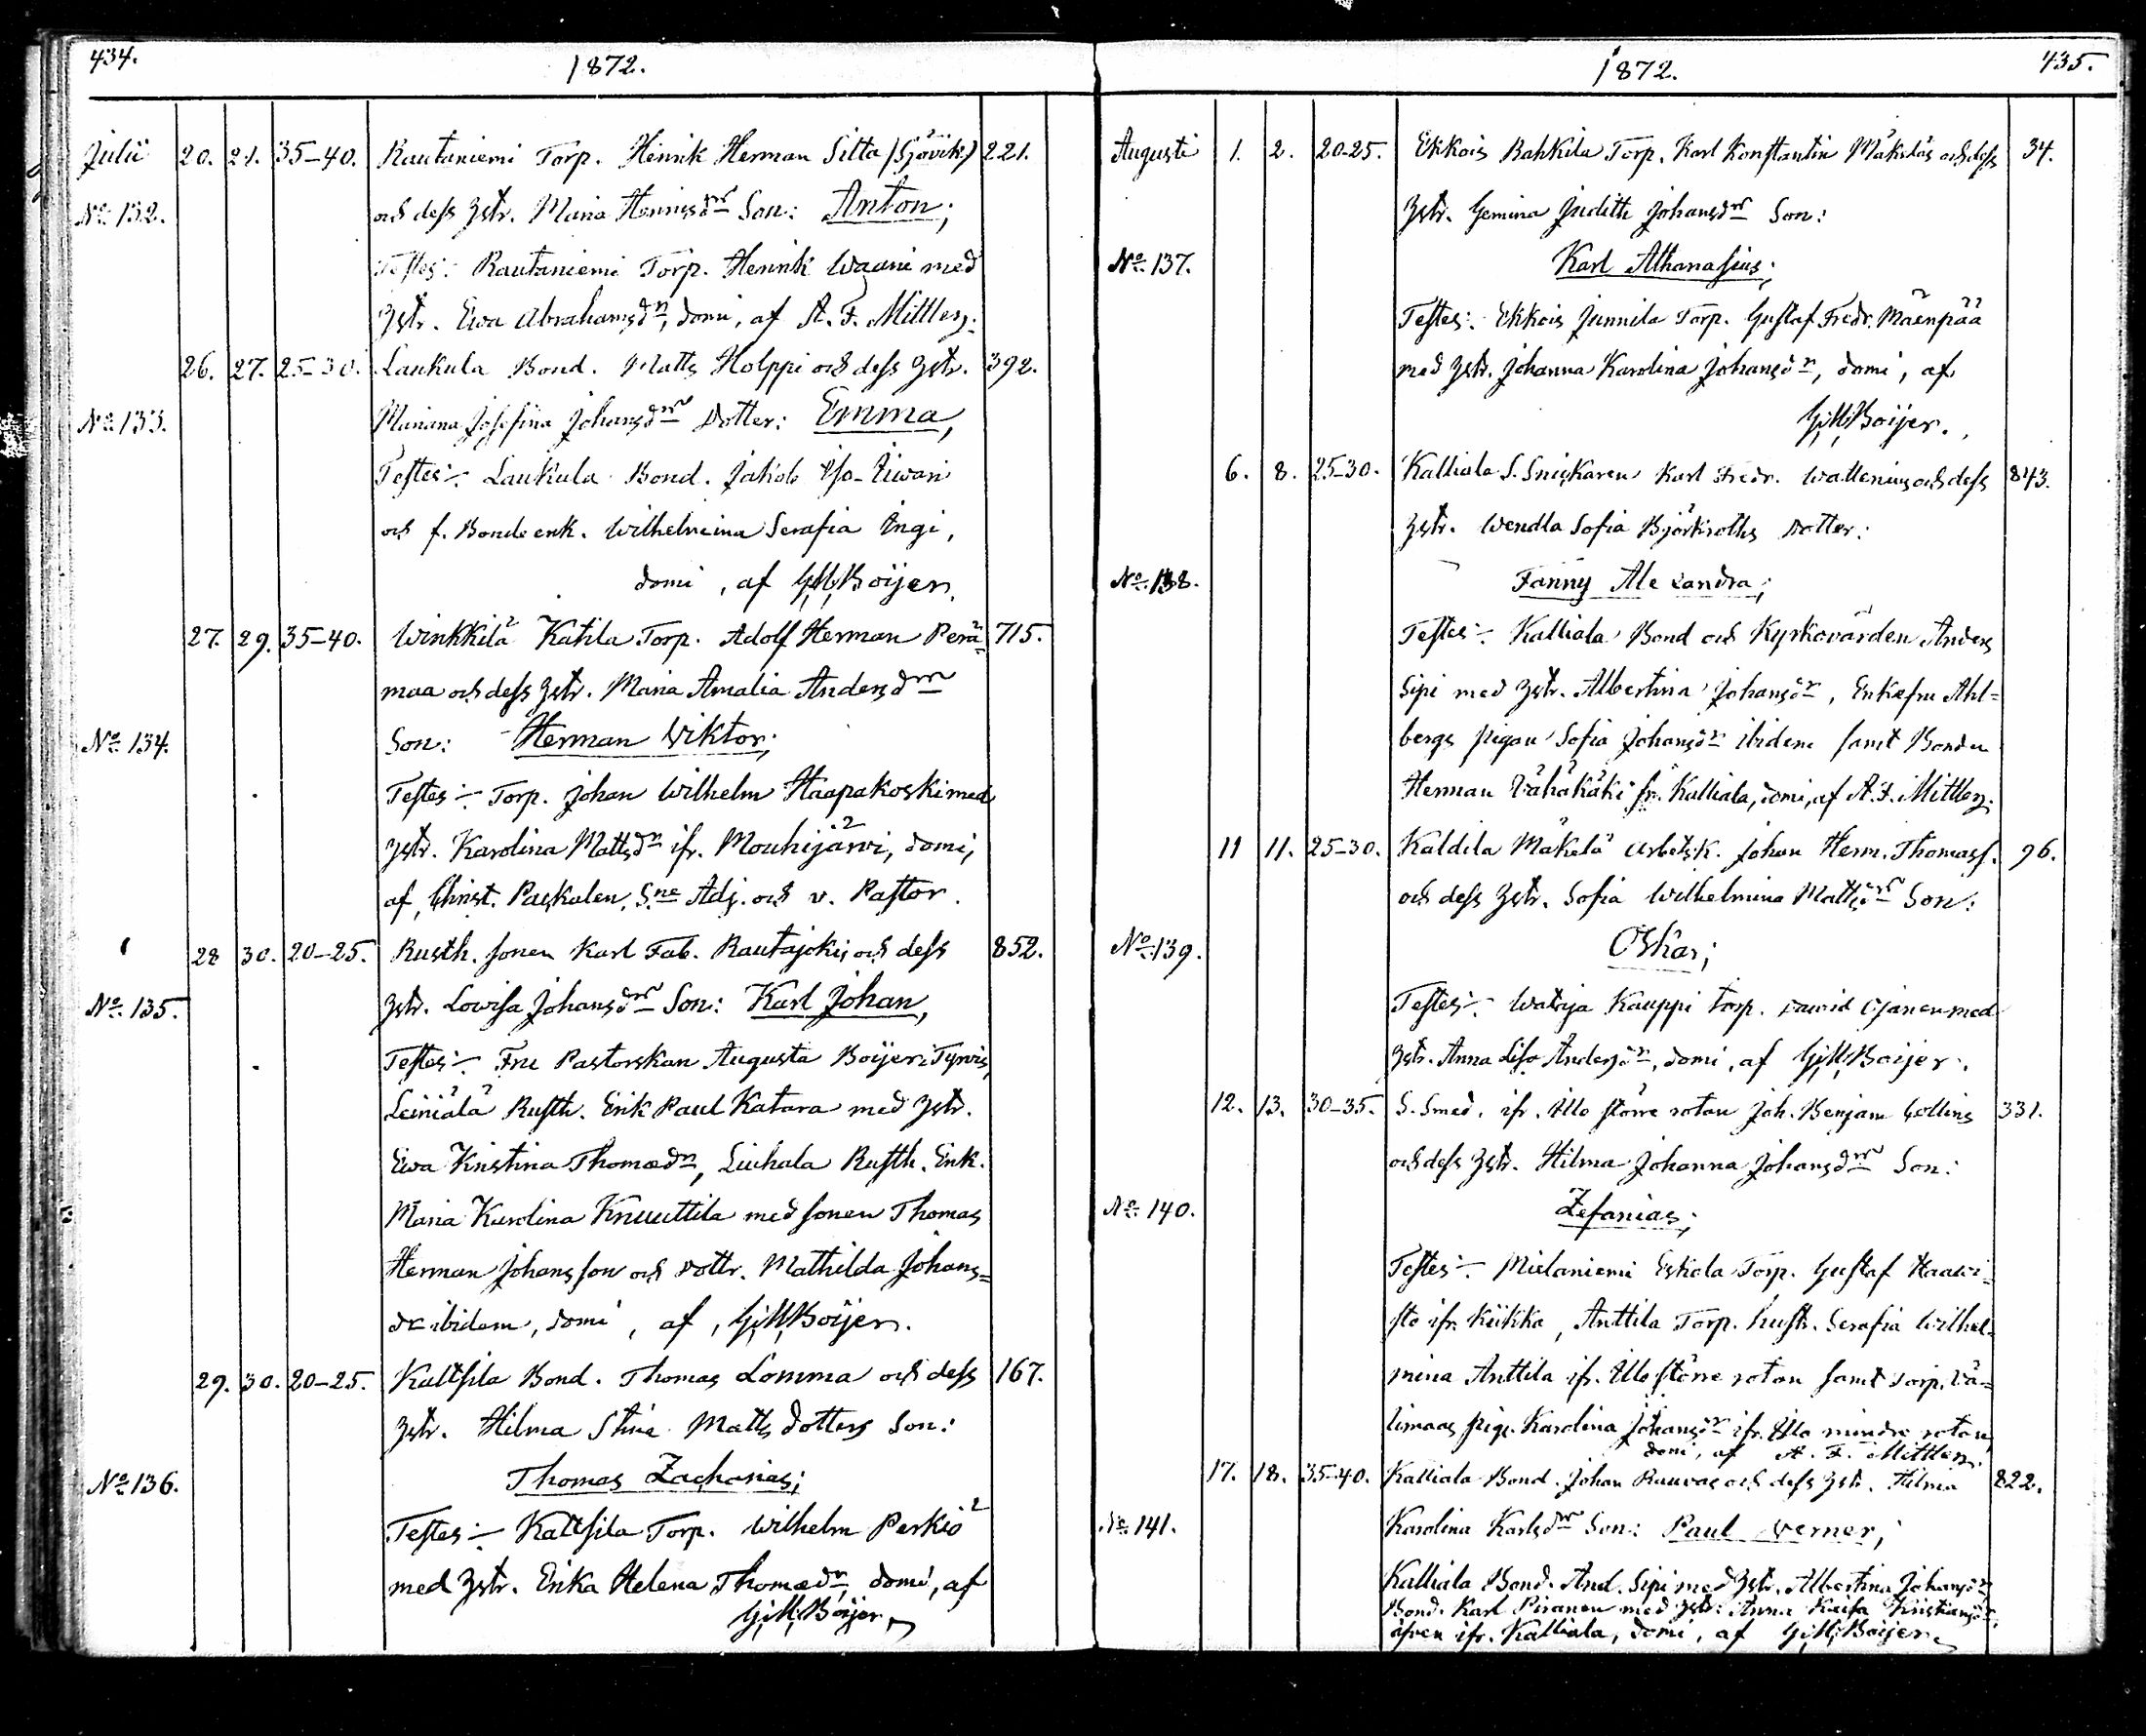 434.
1872.
Julii 20. 21. 35-40. Rautaniemi Torp. Henrik Herman Sitta (Sjövik) 221.
No 132. och dess hstr. Maria Henrisdrs Son: Anton;
Testes: Rautaniemi Torp. Henrik Waani med
hstr. Ewa Abrahamsdr, domi, af A. F. Mittler.
26. 27. 25-30. Laukula Bond. Matts Holppi och dess hstr. 392.
No 133. Mariana Josefina Johansdrs Dotter: Emma,
Testes: Laukula Bond. Jakob Iso-Iiwari
och f. Bonde enk. Wilhelmina Serafia Ingi,
domi, af G.M.Boijer.
27. 29. 35-40. Winkkilä Katila Torp. Adolf Herman Perä= 715.
maa och dess hstr. Maria Amalia Andersdrs
No 134. Son: Herman Viktor;
Testes: Torp. Johan Wilhelm Haapakoski med
hstr. Karolina Mattsdr ifr. Mouhijärvi, domi,
af, Christ. Paskalen, Sne Adj. och v. Pastor.
28 30. 20-25. Rusth. sonen Karl Fab. Rautajokis och dess 852.
No 135. hstr. Lowisa Johansdrs Son: Karl Johan,
Testes: Fru Pastorskan Augusta Boijer i Tyrvis,
Leiniälä Rusth. Erik Paul Katara med hstr.
Ewa Kristina Thomædr, Liuhala Rusth. Enk.
Maria Karolina Knuuttila med sonen Thomas
Herman Johansson och dottr. Mathilda Johans=
dr ibidem, domi, af, G.M.Boijer.
29. 30. 20-25. Kaltsila Bond. Thomas Lomma och dess 167.
hstr. Hilma Stina Matts dotters Son:
No 136. Thomas Zacharias;
Testes: Kaltsila Torp. Wilhelm Perkiö
med hstr. Erika Helena Thomædr, domi, af
G.M.Boijer.
1872.
435.
Augusti 1. 2. 20-25. Ekkois Bahkila Torp. Karl Konstantin Mäkiläs och dess 34.
hstr. Gemina Judith Johansdrs Son:
No 137. Karl Athanasius;
Testes: Ekkois Junnila Torp. Gustaf Fredr. Mäenpää
med hstr. Johanna Karolina Johansdr, domi, af
G.M.Boijer.
6. 8. 25-30. Kalliala S. Snickaren Karl Fredr. Wallenius och dess 843.
hstr. Wendla Sofia Björkroths Dotter:
No 138. Fanny Alexandra;
Testes: Kalliala Bond och Kyrkovärden Anders
Sipi med hstr. Albertina Johansdr, Enkefru Ahl=
bergs pigan Sofia Johansdr ibidem samt Bonden
Herman Vähäkäki fr. Kalliala, domi, af A. F. Mittler.
11 11. 25-30. Kaldila Mäkelä Arbetsk. Johan Herm. Thomass. 96.
och dess hstr. Sofia Wilhelmina Mattsdrs Son:
No 139. Oskar;
Testes: Watija Kauppi Torp. David Ojanen med
hstr. Anna Lisa Andersdr, domi, af G.M.Boijer.
12. 13. 30-35. S. Smed. ifr. Illo större rotan Joh. Benjam Collins 331.
och dess hstr. Hilma Johanna Johansdrs Son:
No 140. Zefanias;
Testes: Mielaniemi Eskola Torp. Gustaf Haawi=
sto ifr. Kiikka, Anttila Torp. hustr. Serafia Wilhel=
mina Anttila ifr. Illo större rotan samt Torp. Vä=
limaas pig. Karolina Johansdr ifr. Illo mindre rotan,
domi, af A. F. Mittler.
17. 18. 35-40. Kalliala Bond. Johan Rauvas och dess hstr. Hilma 822.
No 141. Karolina Karlsdrs Son: Paul Verner;
Kalliala Bond. And. Sipi med hstr. Albertina Johansdr
Bond. Karl Piranen med hstr. Anna Kaisa Kristiansdr,
äfven ifr. Kalliala, domi, af G.M.Boijer.